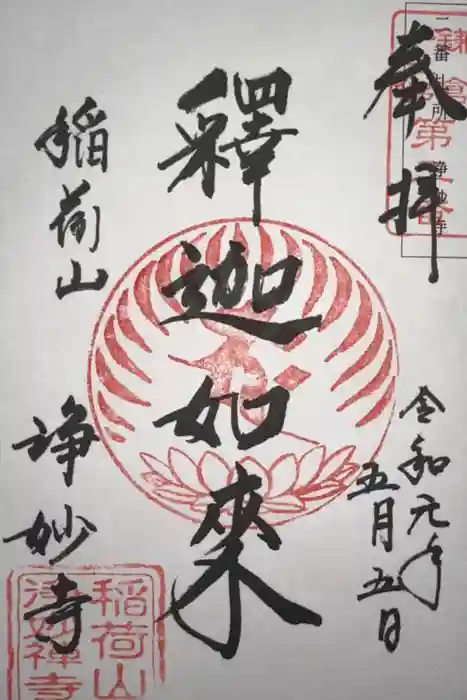 鎌倉第二番
二番札所 浄妙寺
奉拝
令和元年
五月五日
釋迦如來
稲荷山
淨妙寺
稲荷山
淨妙禅寺